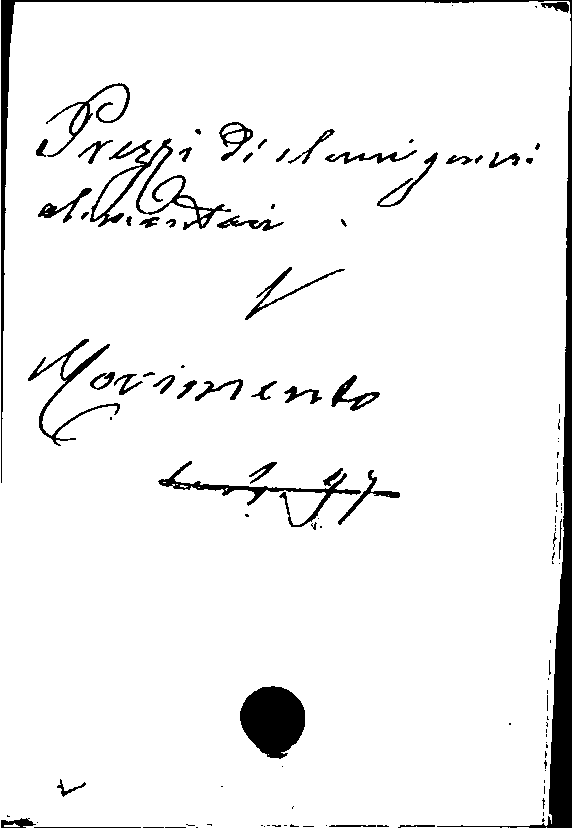 Prezzi di alcuni generi
alimentari
V
Movimento
97